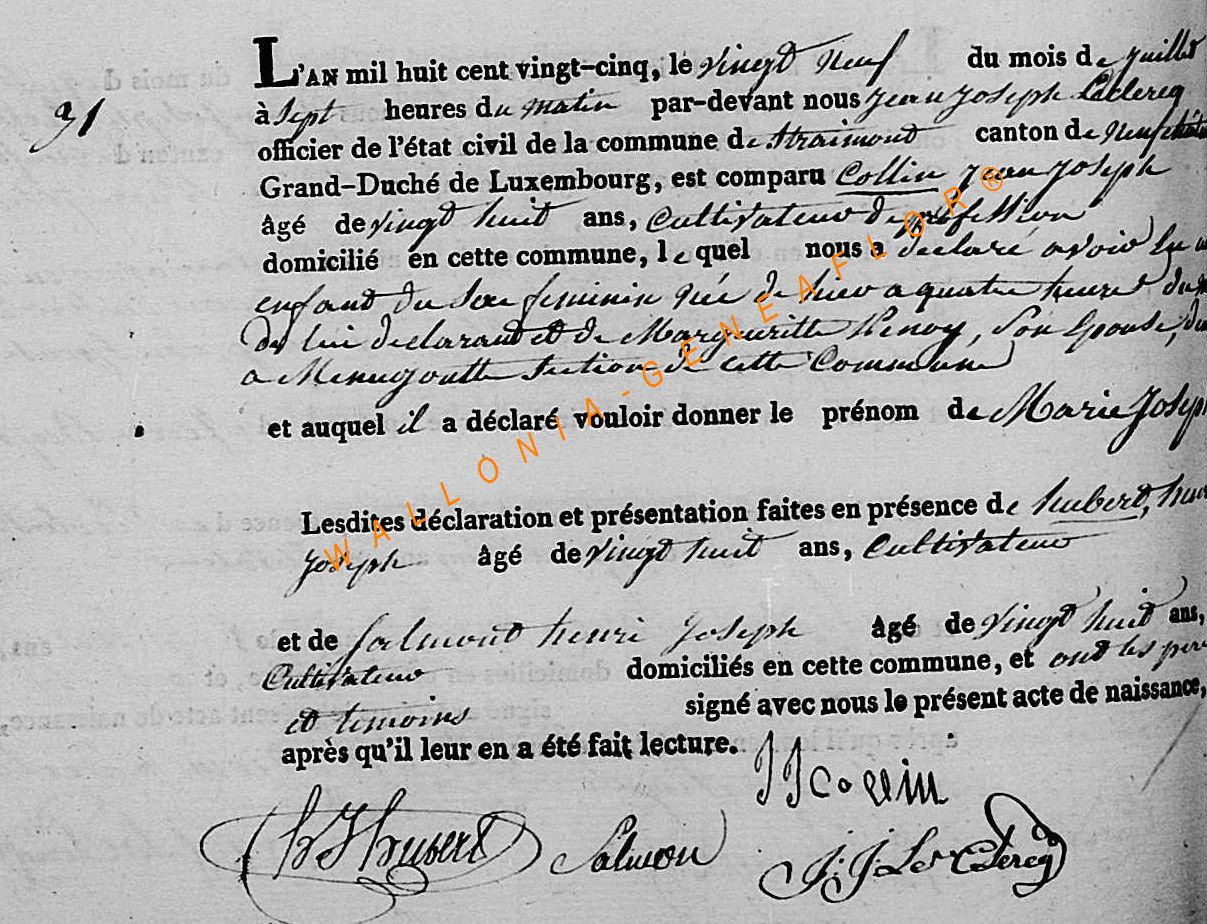 31
L'AN mil huit cent vingt-cinq, le vingt neuf du mois de juillet
à Sept heures du matin par-devant nous jean joseph Leclercq
officier de l'état civil de la commune de Straimont canton de neufchât
Grand-Duché de Luxembourg, est comparu Collin jean joseph
âgé de vingt huit ans, Cultivateur de profession
domicilié en cette commune, lequel nous a declaré avoir Eu u
enfant du Sexe feminin née de hier a quatre heures du
de lui declarant et de Margueritte Renoy, Son Epouse,
a Menugoutte Section de cette Commune
et auquel il a déclaré vouloir donner le prénom de Marie Joseph
Lesdites déclaration et présentation faites en présence de hubert,
Joseph âgé de vingt huit ans, Cultivateur
et de Salmont henri Joseph âgé de vingt huit ans,
Cultivateur domiciliés en cette commune, et ont les pere
et temoins signé avec nous le présent acte de naissance,
après qu'il leur en a été fait lecture.
J J Collin
h J hubert Salmon J. J. Le Clercq
WALLONIA-GENEAFLOR®